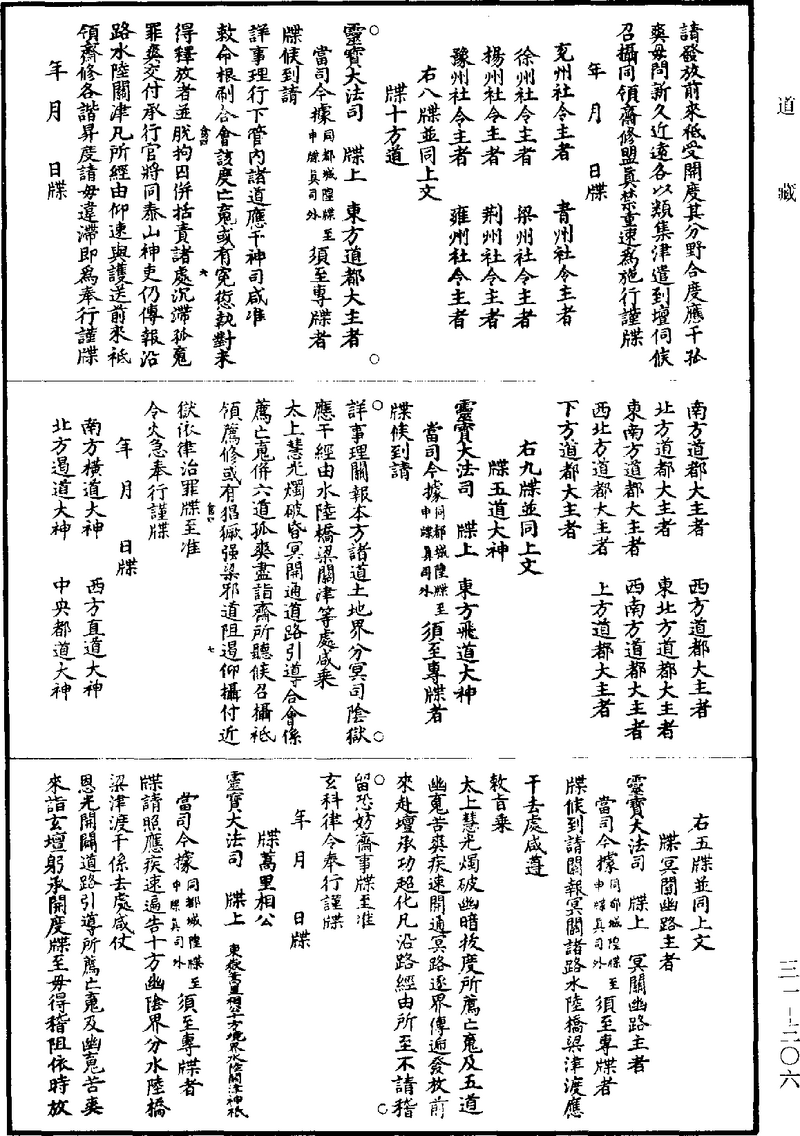 道藏
請發放前來祗受開度其分野合度應干孤
爽毋問新久近遠各以類集津遣到壇伺候
召攝同領齋修盟真禁重速為施行謹牒
年　月　日牒
兗州社令主者　青州社令主者
徐州社令主者　梁州社令主者
揚州社令主者　荆州社令主者
豫州社令主者　雍州社令主者
右八牒並同上文
牒十方道
靈寶大法司　牒上　東方道都大主者
當司今據同都城隍牒至申牒真司外須至專牒者
牒候到請
詳事理行下管內諸道應干神司咸准
敕命根刷合會該度亡魂或有冤愆執對未
得釋放者並脫拘囚併括責諸處沉滯孤魂
罪爽交付承行官將同泰山神吏仍傳報沿
路水陸關津凡所經由仰速與護送前來祗
領齋修各諧昇度請毋違滯即為奉行謹牒
年　月　日牒
南方道都大主者　西方道都大主者
北方道都大主者　東北方道都大主者
東南方道都大主者　西南方道都大主者
西北方道都大主者　上方道都大主者
下方道都大主者
右九牒並同上文
牒五道大神
靈寶大法司　牒上　東方飛道大神
當司今據同都城隍牒至申牒真司外須至專牒者
牒候到請
詳事理關報本方諸道土地界分冥司陰獄
應干經由水陸橋梁關津等處咸乘
太上慧光燭破昏冥開通道路引導合會係
薦亡魂併六道孤爽盡詣齋所聽候召攝祗
領薦修或有猖獗强梁邪道阻遏仰攝付近
獄依律治罪牒至准
令火急奉行謹牒
年　月　日牒
南方橫道大神　西方直道大神
北方遏道大神　中央都道大神
右五牒並同上文
牒冥關幽路主者
靈寶大法司　牒上　冥關幽路主者
當司今據同都城隍牒至申牒真司外須至專牒者
牒候到請關報冥關諸路水陸橋梁津渡應
干去處咸遵
敕旨乘
太上慧光燭破幽暗拔度所薦亡魂及五道
幽魂苦爽疾速開通冥路逐界傳遍發放前
來赴壇承功超化凡沿路經由所至不請稽
留恐妨齋事牒至准
玄科律令奉行謹牒
年　月　日牒
牒萬里相公
靈寶大法司　牒上　東嶽萬里相公十方境界水陸關津神祇
當司今據同都城隍牒至申牒真司外須至專牒者
牒請照應疾速遍告十方幽陰界分水陸橋
梁津渡干係去處咸仗
恩光開闢道路引導所薦亡魂及幽魂苦爽
來詣玄壇躬承開度牒至毋得稽阻依時放
三一－二〇六